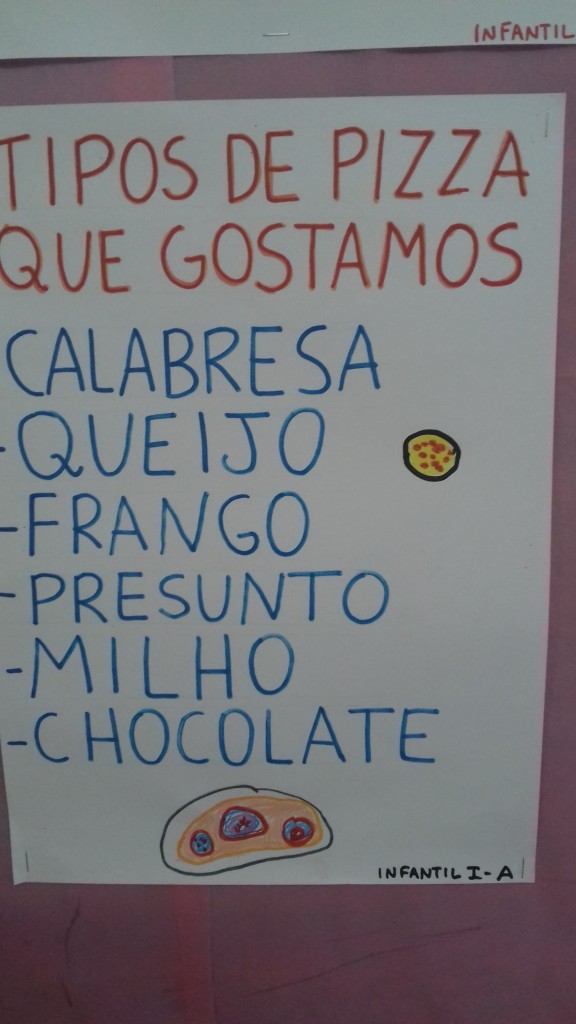 INFANTIL
TIPOS DE PIZZA
QUE GOSTAMOS
CALABRESA
-QUEIJO
-FRANGO
-PRESUNTO
-MILHO
-CHOCOLATE
INFANTIL I-A